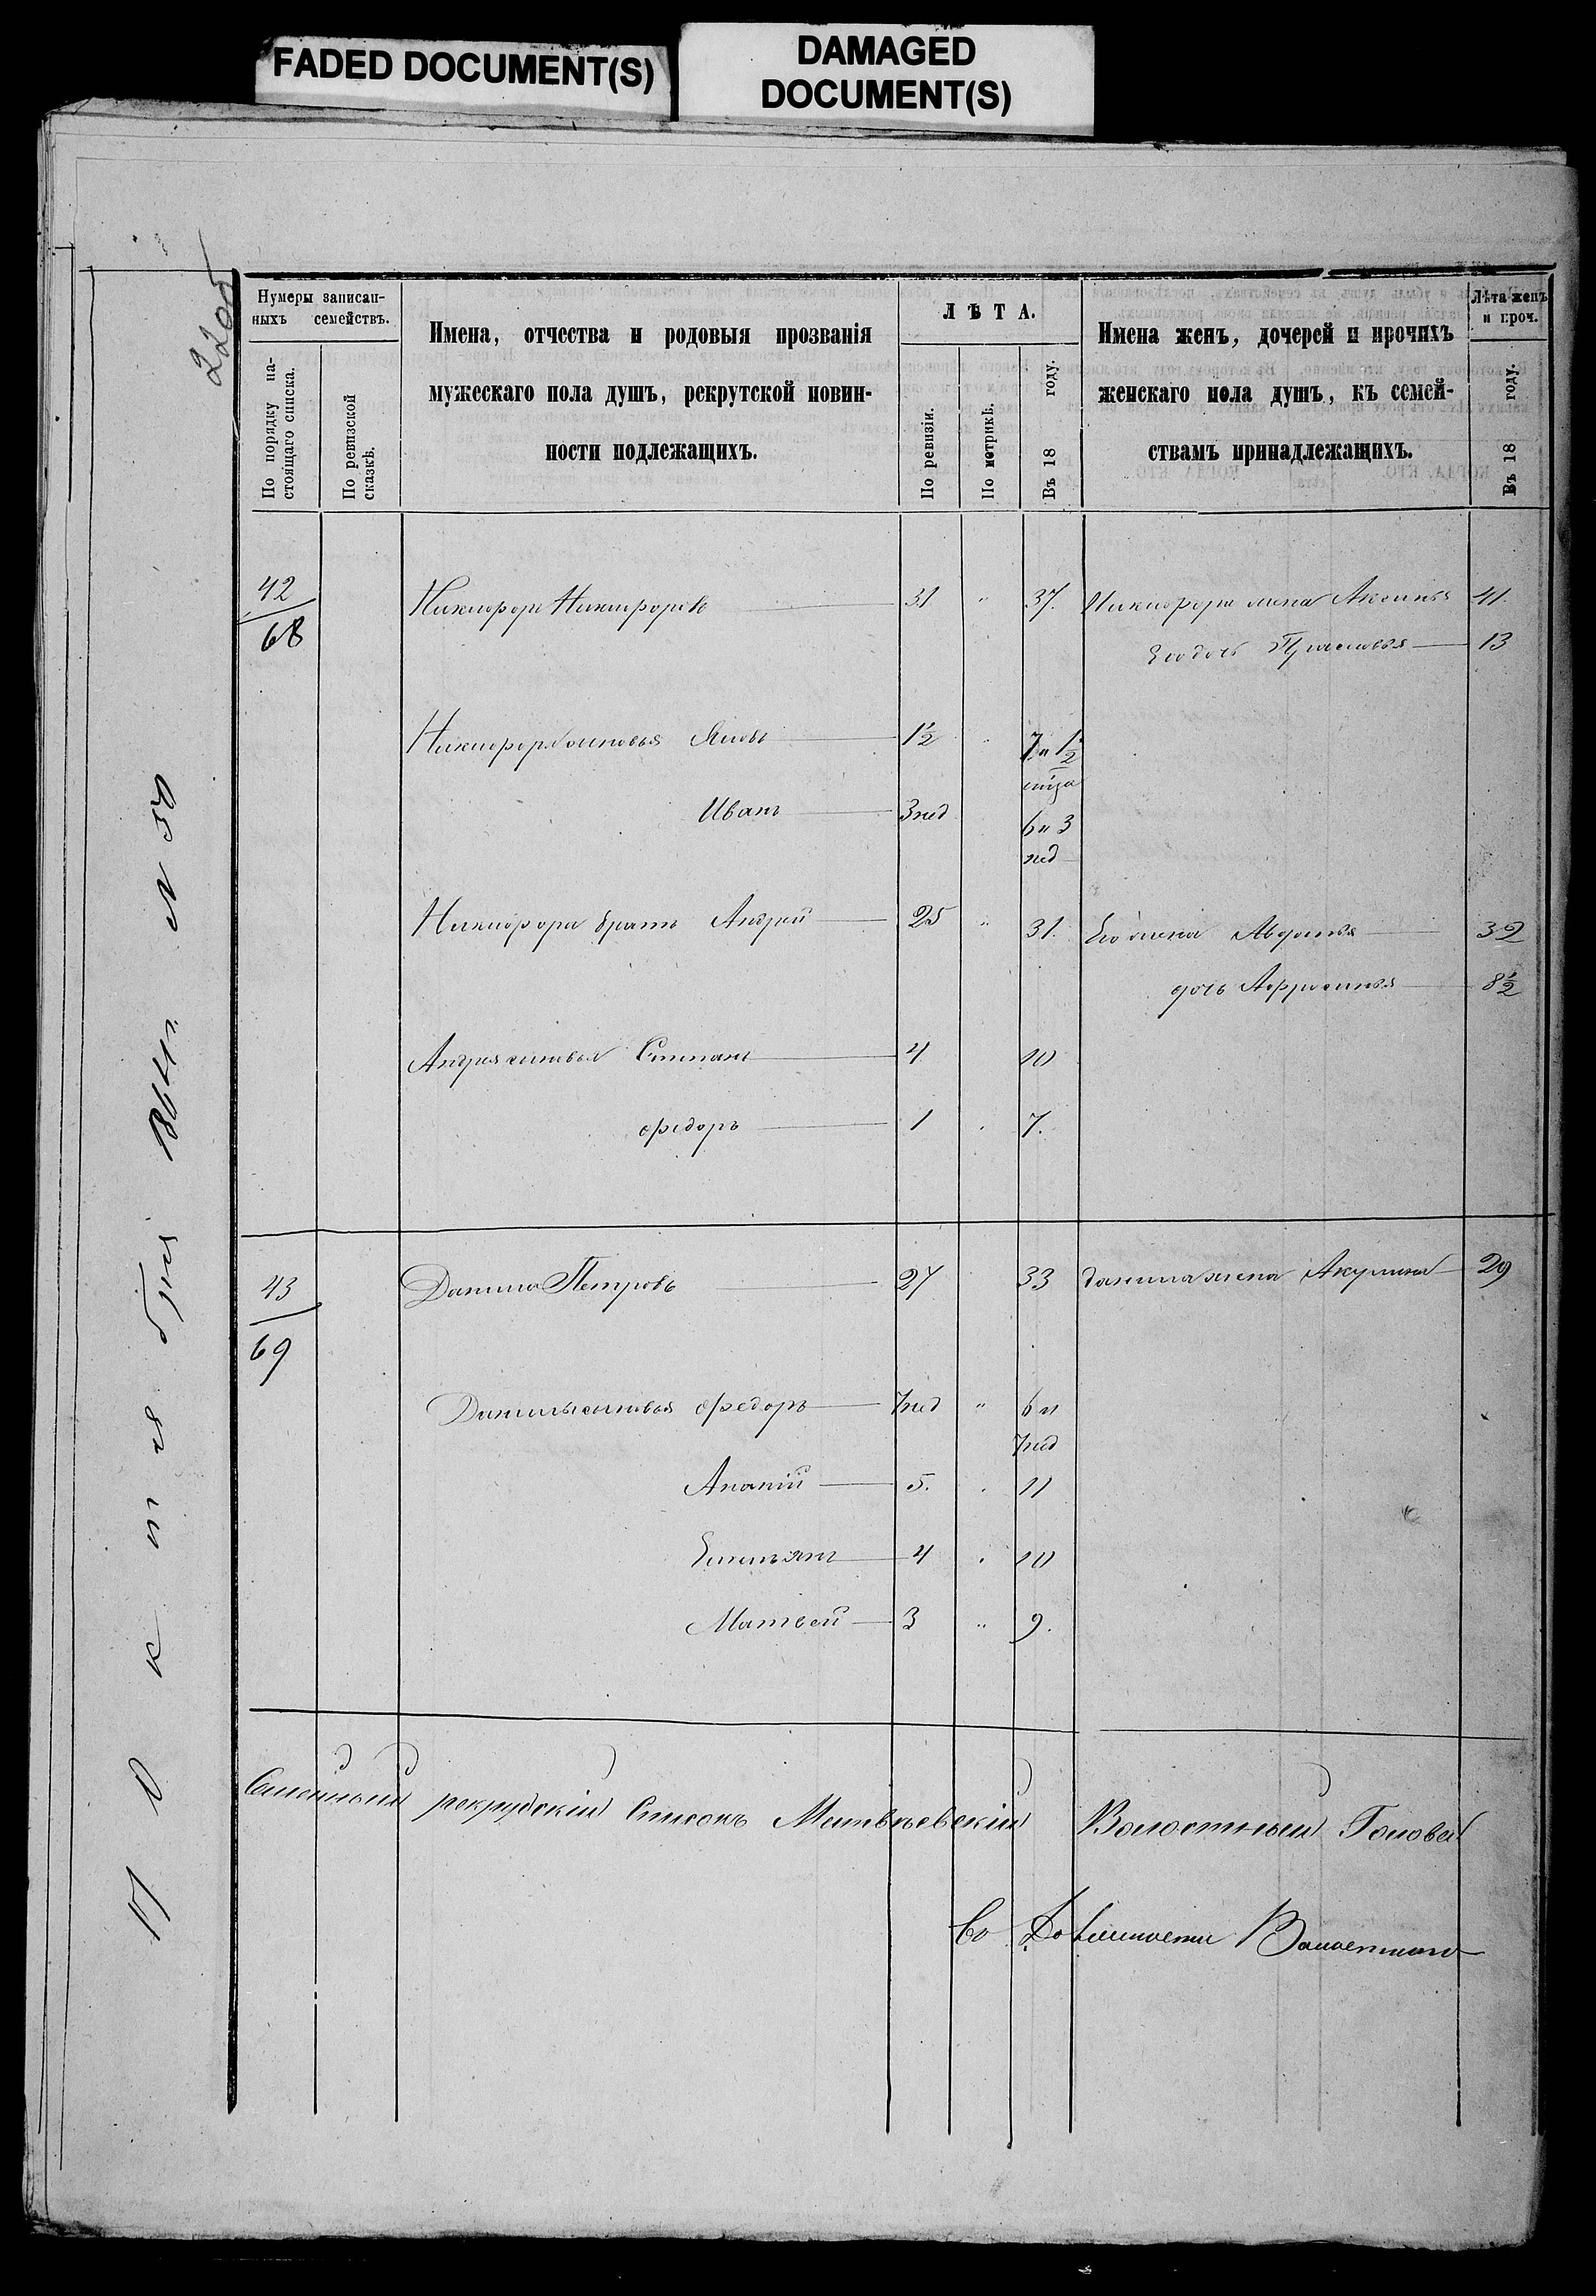 FADED DOCUMENT(S)
DAMAGED
DOCUMENT(S)
2205
Нумеры записан-
ныхъ семействъ.
По порядку на-
стоящаго списка.
По ревизской
сказкѣ.
Имена, отчества и родовыя прозванія
мужескаго пола душъ, рекрутской повин-
ности подлежащихъ.
ЛѢТА.
По ревизіи.
По метрикѣ.
Въ 18 году.
Имена женъ, дочерей и прочихъ
женскаго пола душъ, къ семей-
ствамъ принадлежащихъ.
Лѣта женъ
и проч.
Въ 18 году.
42 Никифоръ Никифоровъ 31 " 37. Никифора жена Аксинья 41.
68
Его дочь Прасковья 13
Никифора сыновья Яковъ 1½ 7 и 1½
Иванъ 3 нед 6 и 3
нед
Никифора братъ Андрей 25 " 31. Его жена Авдотья 32
дочь Афросинья 8½
Андрея сыновья Степанъ 4 10
Федоръ 1 7.
43 Данило Петровъ 27 33 Данила жена Акулина 29
69
Данилы сыновья Федоръ 7 нед " 6 и
7 нед
Ананій 5. 11
Емельянъ 4 10
Матвей 3 " 9.
рекрудскій Списокъ Матвѣевскій Волостный Голова
Октября 1864 г. N 30